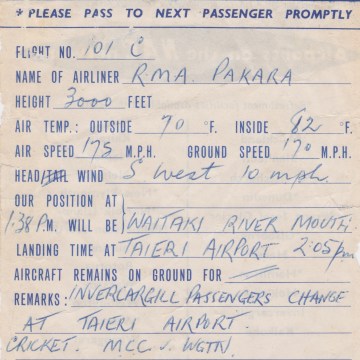 * PLEASE PASS TO NEXT PASSENGER PROMPTLY
FLIGHT NO. 101 C
NAME OF AIRLINER R.M.A. PAKARA
HEIGHT 3000 FEET
AIR TEMP.: OUTSIDE 70 °F. INSIDE 82 °F.
AIR SPEED 175 M.P.H. GROUND SPEED 170 M.P.H.
HEAD/TAIL WIND S'West 10 mph.
OUR POSITION AT
1.38 P.M. WILL BE WAITAKI RIVER MOUTH.
LANDING TIME AT TAIERI AIRPORT 2.05pm
AIRCRAFT REMAINS ON GROUND FOR
REMARKS: INVERCARGILL PASSENGERS CHANGE
AT TAIERI AIRPORT.
CRICKET. MCC V. WGTN